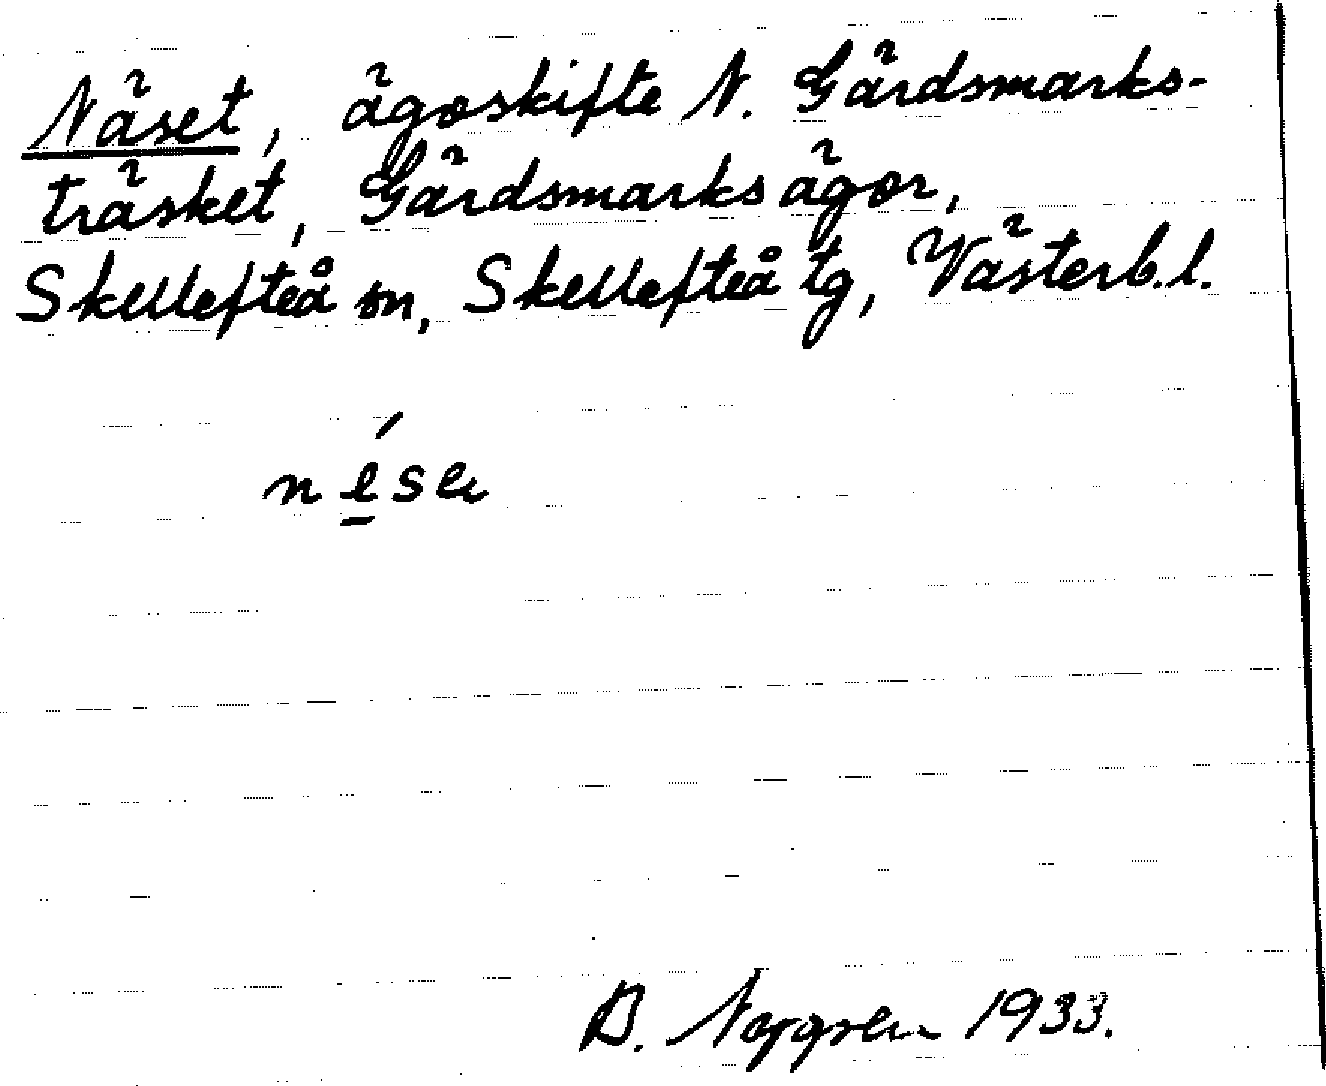 Näset, ägoskifte N. Gärdsmarks-
träsket, Gärdsmarks ägor,
Skellefteå sn, Skellefteå tg, Västerb.l.
B. Norgren 1933.